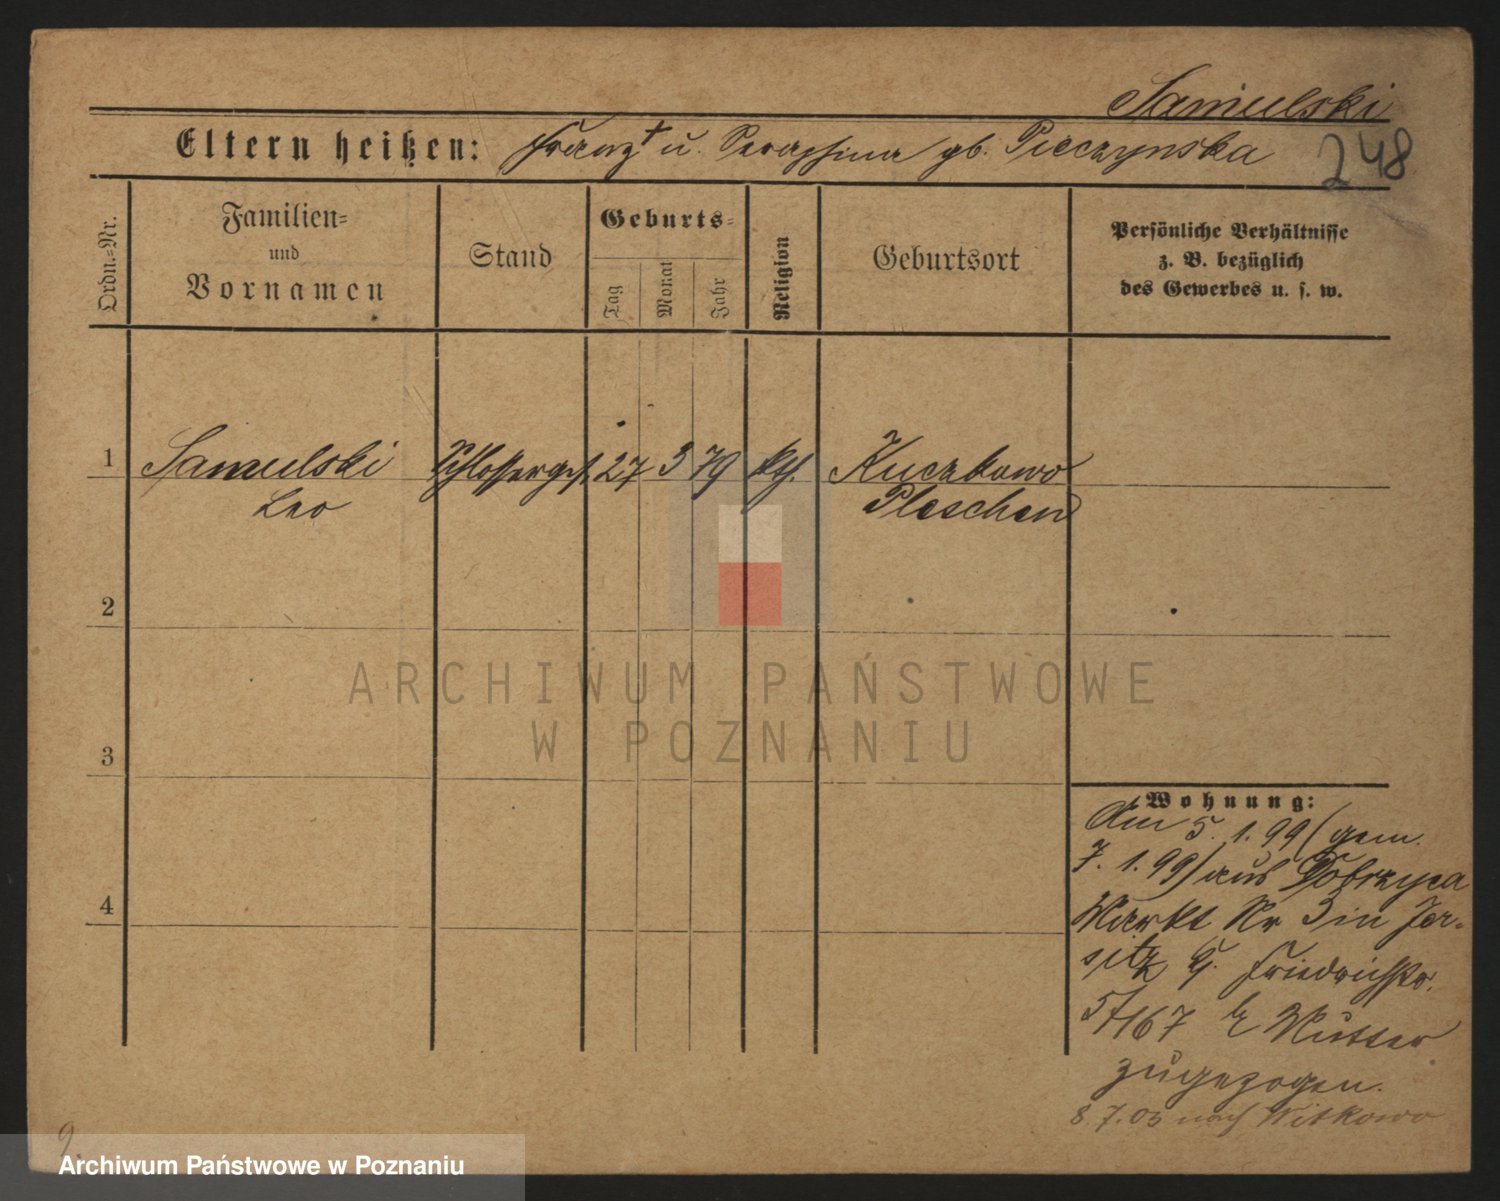 Samulski
Eltern heißen: Franz † u. Seraphina gb. Pieczynska
248
Ordn.-Nr.
Familien-
und
Vornamen
Stand
Geburts-
Tag
Monat
Jahr
Religion
Geburtsort
Persönliche Verhältnisse
z. B. bezüglich
des Gewerbes u. s. w.
1 Samulski Schlosserges. 27 3 79 kth. Kuczkowo
Leo Pleschen
2
3
4
Wohnung:
Am 5. 1. 99 (gem.
7. 1. 99) aus Dobrzyca
Markt Nr 3 in Jer-
sitz Gr. Friedrichstr.
167 b Mutter
zugezogen.
8.7.03 nach Witkowo
9.
ARCHIWUM PAŃSTWOWE
W POZNANIU
Archiwum Państwowe w Poznaniu